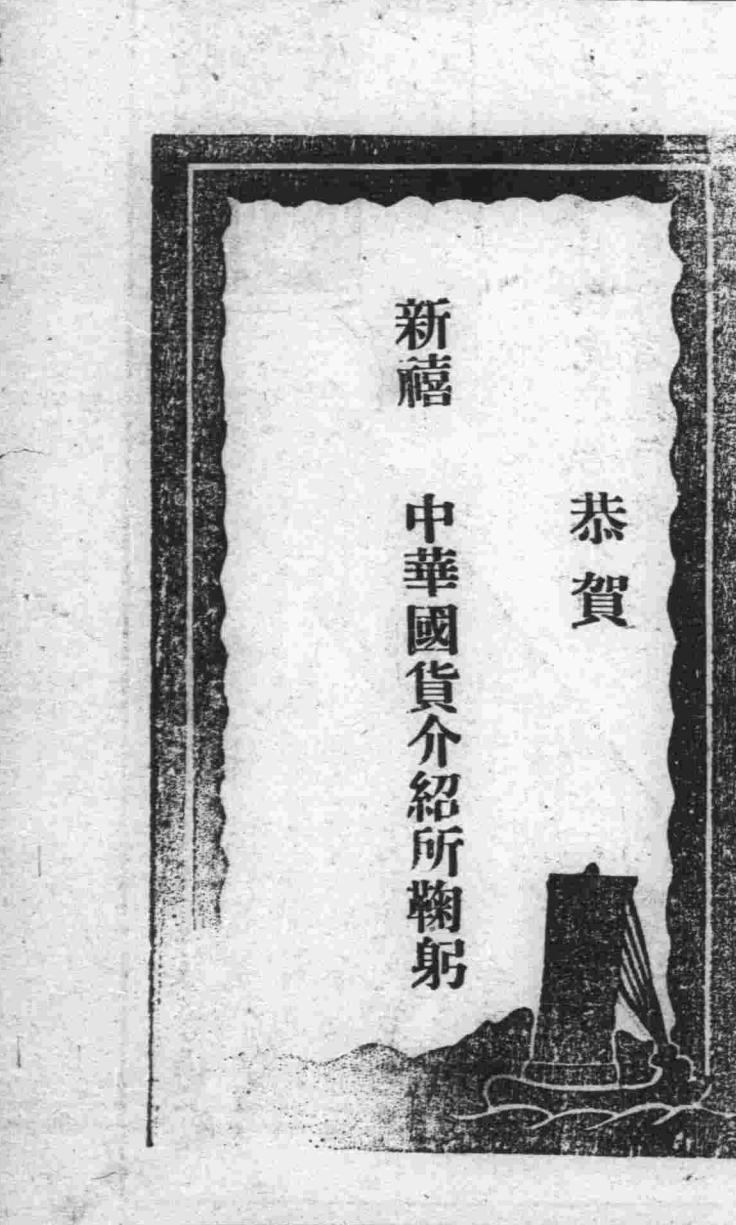 恭賀
新禧 中華國貨介紹所鞠躬